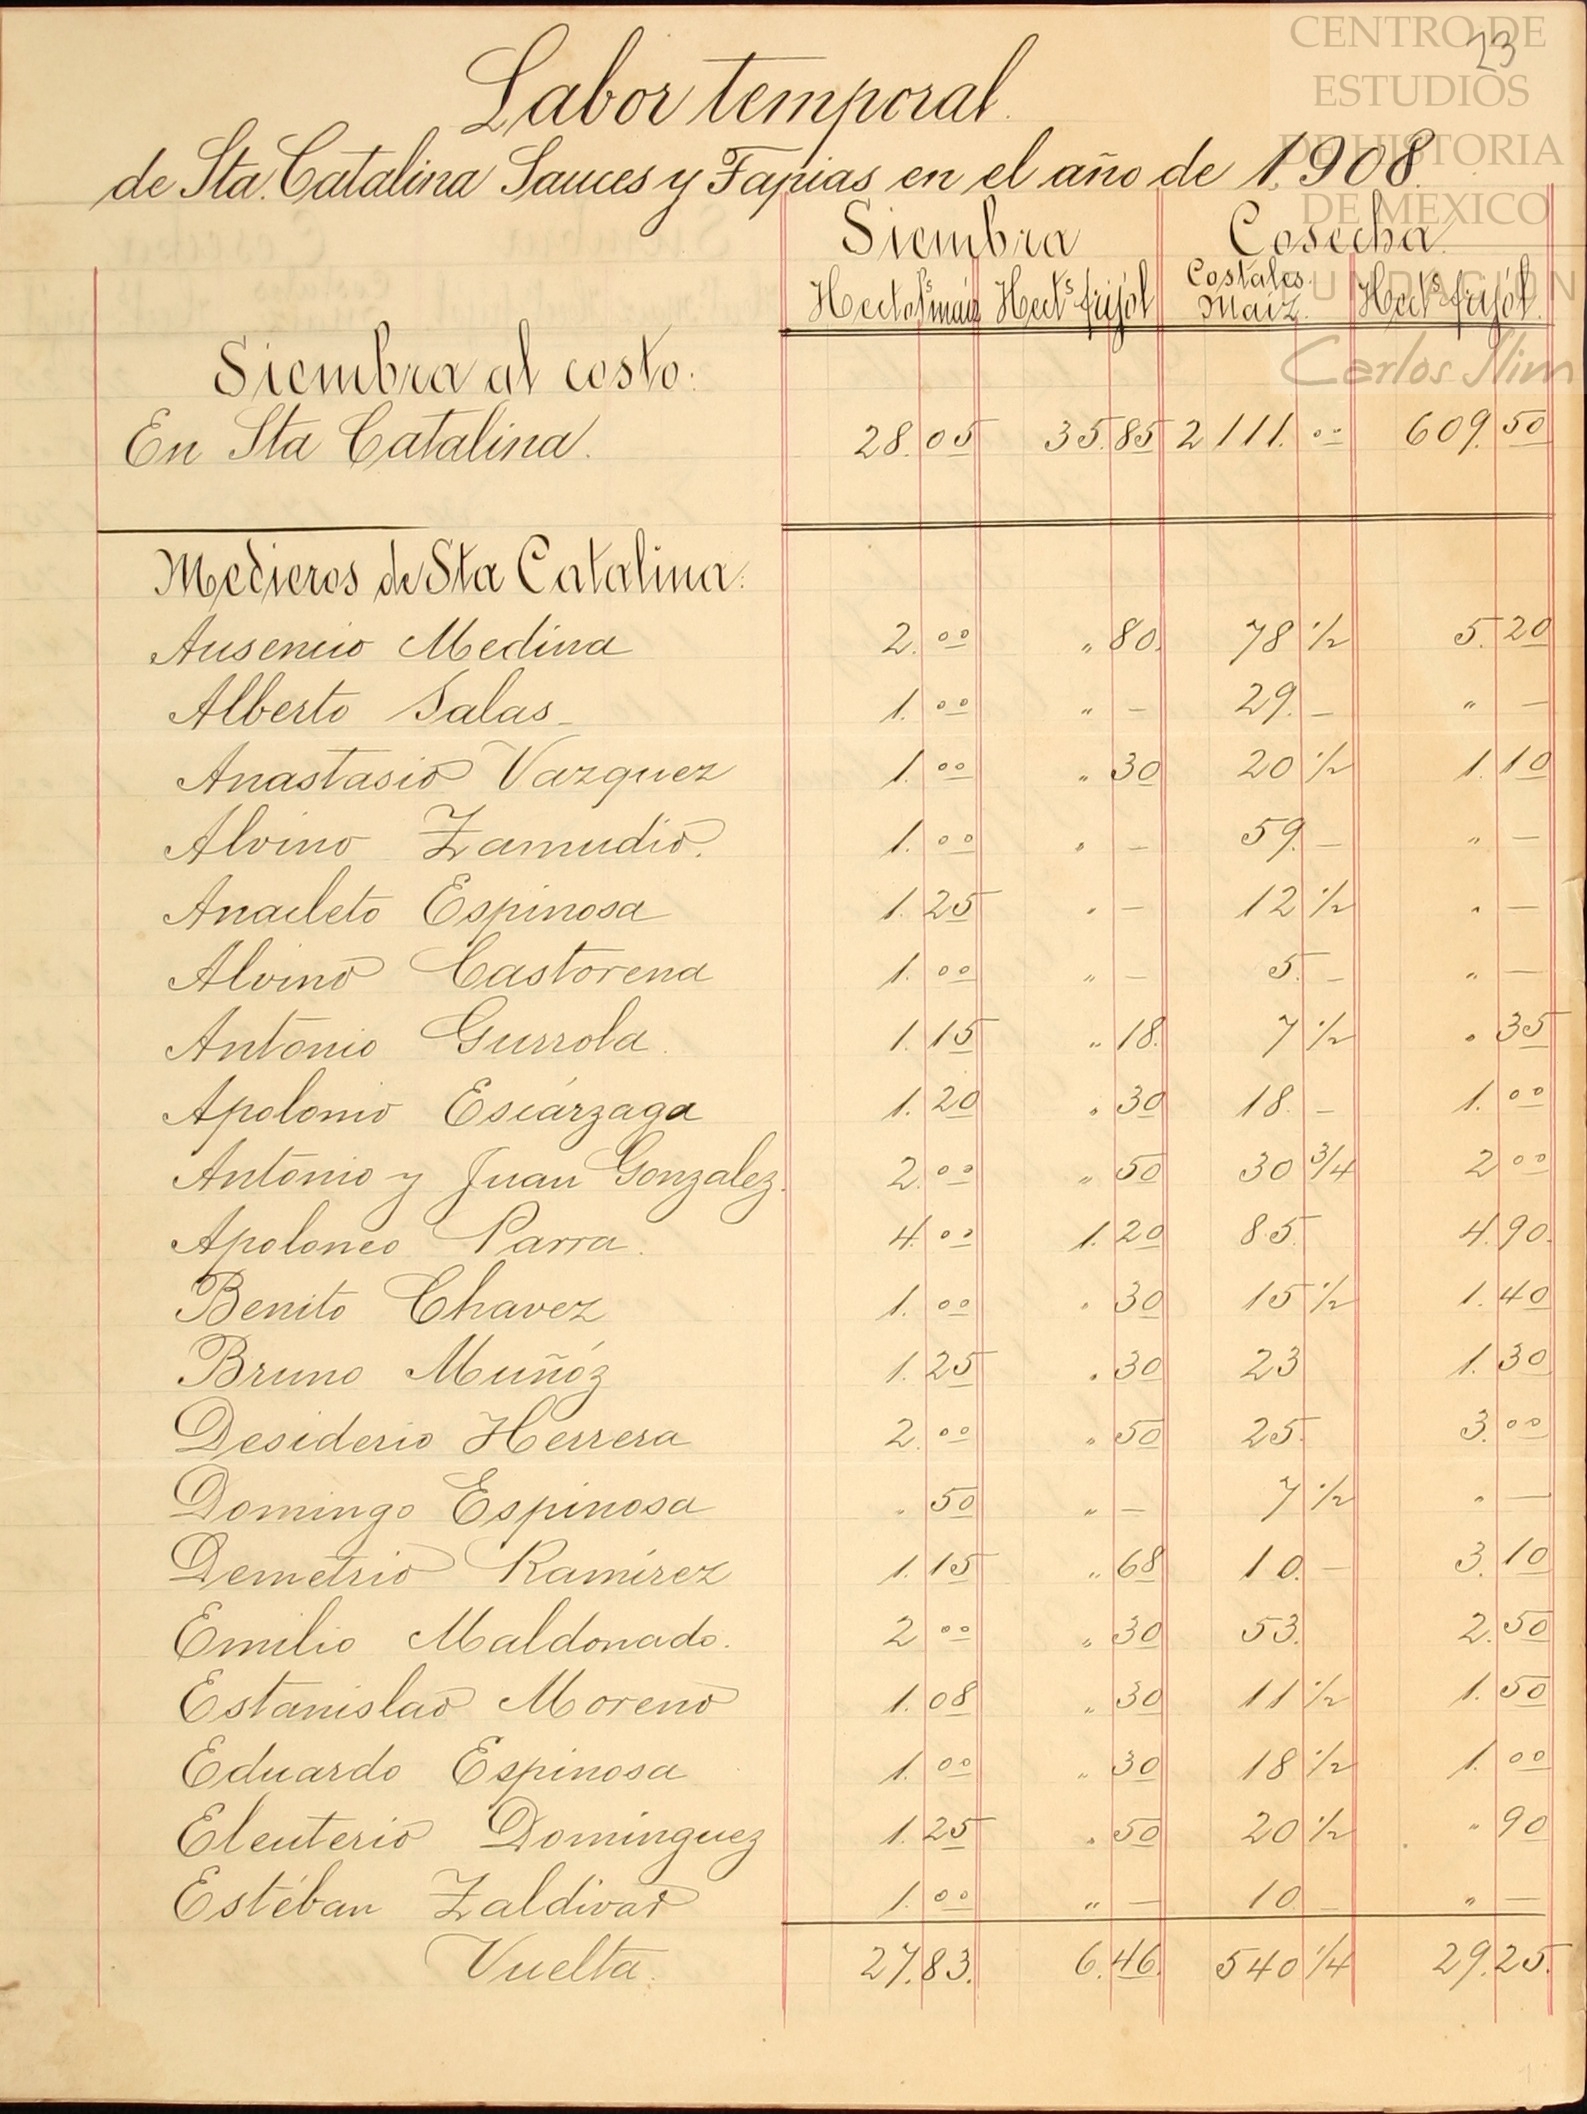 CENTRO DE
ESTUDIOS
DE HISTORIA
DE MÉXICO
FUNDACIÓN
Carlos Slim
23
Labor temporal.
de Sta. Catalina Sauces y Tapias en el año de 1908.
Siembra Cosecha
Hectols maíz Hects frijól Costales Maíz. Hects frijól.
Siembra al costo:
En Sta Catalina. 28.05 35.85 2111.00 609.50
Medieros de Sta Catalina:
Ausencio Medina 2.00 " 80. 78 1/2 5.20
Alberto Salas 1.00 " - 29. - " -
Anastasio Vazquez 1.00 " 30 20 1/2 1.10
Alvino Zamudio. 1.00 " - 59. - " -
Anacleto Espinosa 1.25 " - 12 1/2 " -
Alvino Castorena 1.00 " - 5. - " -
Antonio Gurrola. 1.15 " 18. 7 1/2 " 35
Apolonio Escárzaga 1.20 " 30 18. - 1.00
Antonio y Juan Gonzalez. 2.00 " 50 30 3/4 2 00
Apoloneo Parra. 4.00 1.20 85. 4.90.
Benito Chavez 1.00 " 30 15 1/2 1.40
Bruno Muñóz 1.25 " 30 23 1.30
Desiderio Herrera 2.00 " 50 25. 3.00
Domingo Espinosa " 50 " - 7 1/2 " -
Demetrio Ramírez 1.15 " 68 10. - 3.10
Emilio Maldonado. 2 00 " 30 53. 2.50
Estanislao Moreno 1.08 " 30 11 1/2 1.50
Eduardo Espinosa 1.00 " 30 18 1/2 1.00
Eleuterio Dominguez 1.25 " 50 20 1/2 " 90
Estéban Zaldivar 1.00 " - 10 - " -
Vuelta. 27.83. 6.46. 540 1/4 29.25.